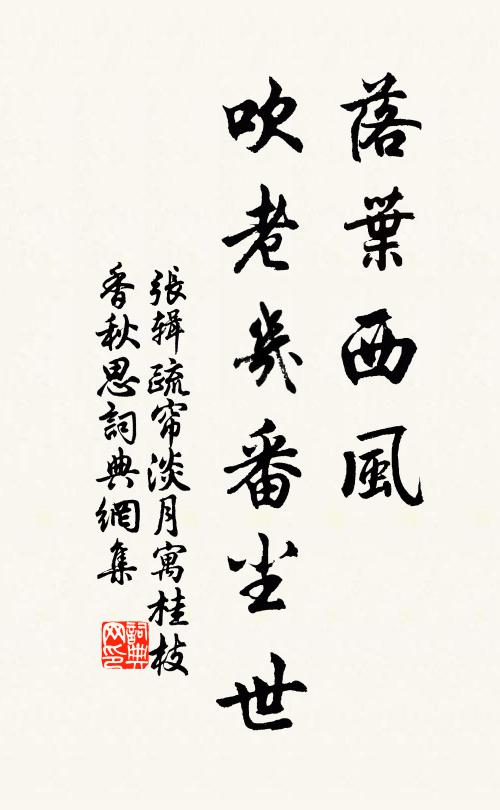 落葉西風
吹老幾番塵世
張輯疏帘淡月寓桂枝
香秋思詞典網集
詞典
网印